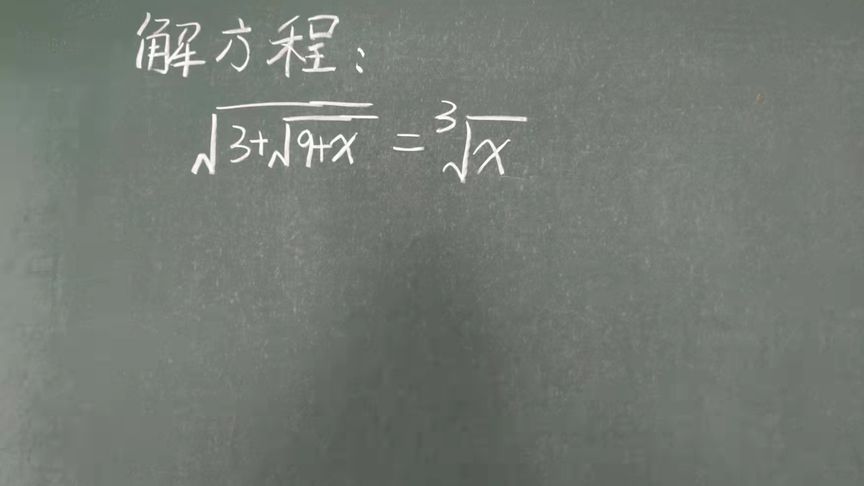 解方程：
√(3+√(9+x)) = ³√x